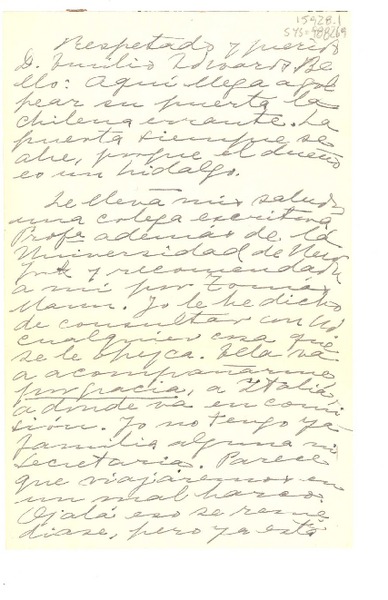 15928.1
SYS=988269
Respetado y querido
D. Emilio Edwards Be-
llo: Aquí llega a gol-
pear su puerta la
chilena errante. La
puerta siempre se
abre, porque el dueño
es un hidalgo.
Le lleva mis saludos
una colega escritora,
Profa además de la
Universidad de New
York y recomendada
a mí por Tomas
Mann. Yo le he dicho
de consultar con Ud
cualquier cosa que
se le ofrezca. Ella va
a acompañarme
por gracia, a Italia,
a donde va en comi-
sión. Yo no tengo ya
familia alguna ni
secretaria. Parece
que viajaremos en
un mal barco.
Ojalá eso se reme-
diase, pero ya está